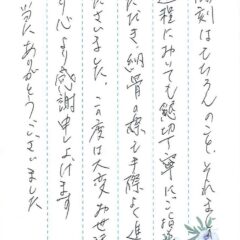 彫刻はもちろんのこと、それまでの
過程においても懇切丁寧にご指導
いただき、納骨の際も手際よく進
ございました。この度は大変お世話
り心より感謝申し上げます
当にありがとうございました